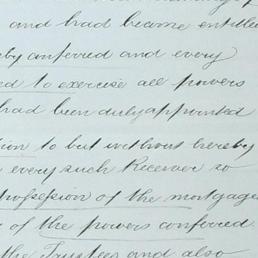 and had become entitled
conferred and every
to exercise all powers
had been duly appointed
to but without hereby
every such Receiver so
possession of the mortgaged
of the powers conferred
the Trustees and also